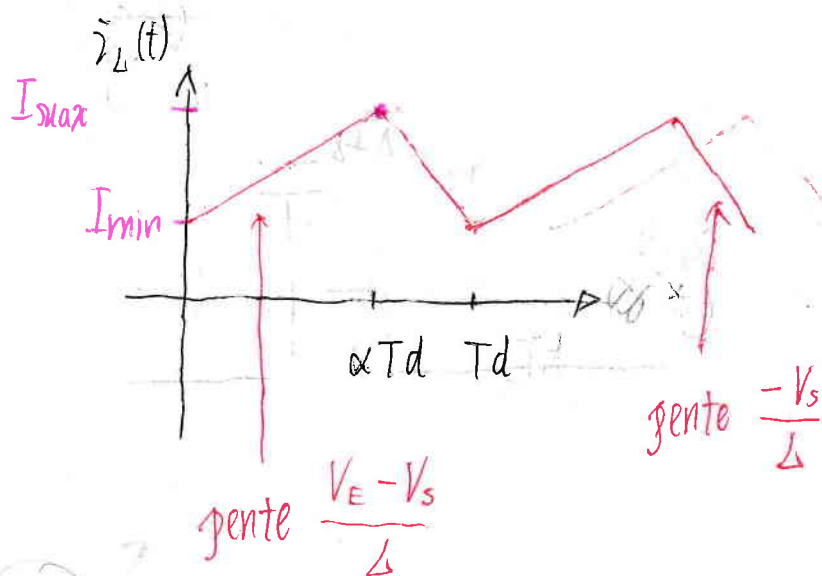 i_L(t)
I_max
I_min
αTd Td
pente \frac{-V_S}{L}
pente \frac{V_E - V_S}{L}